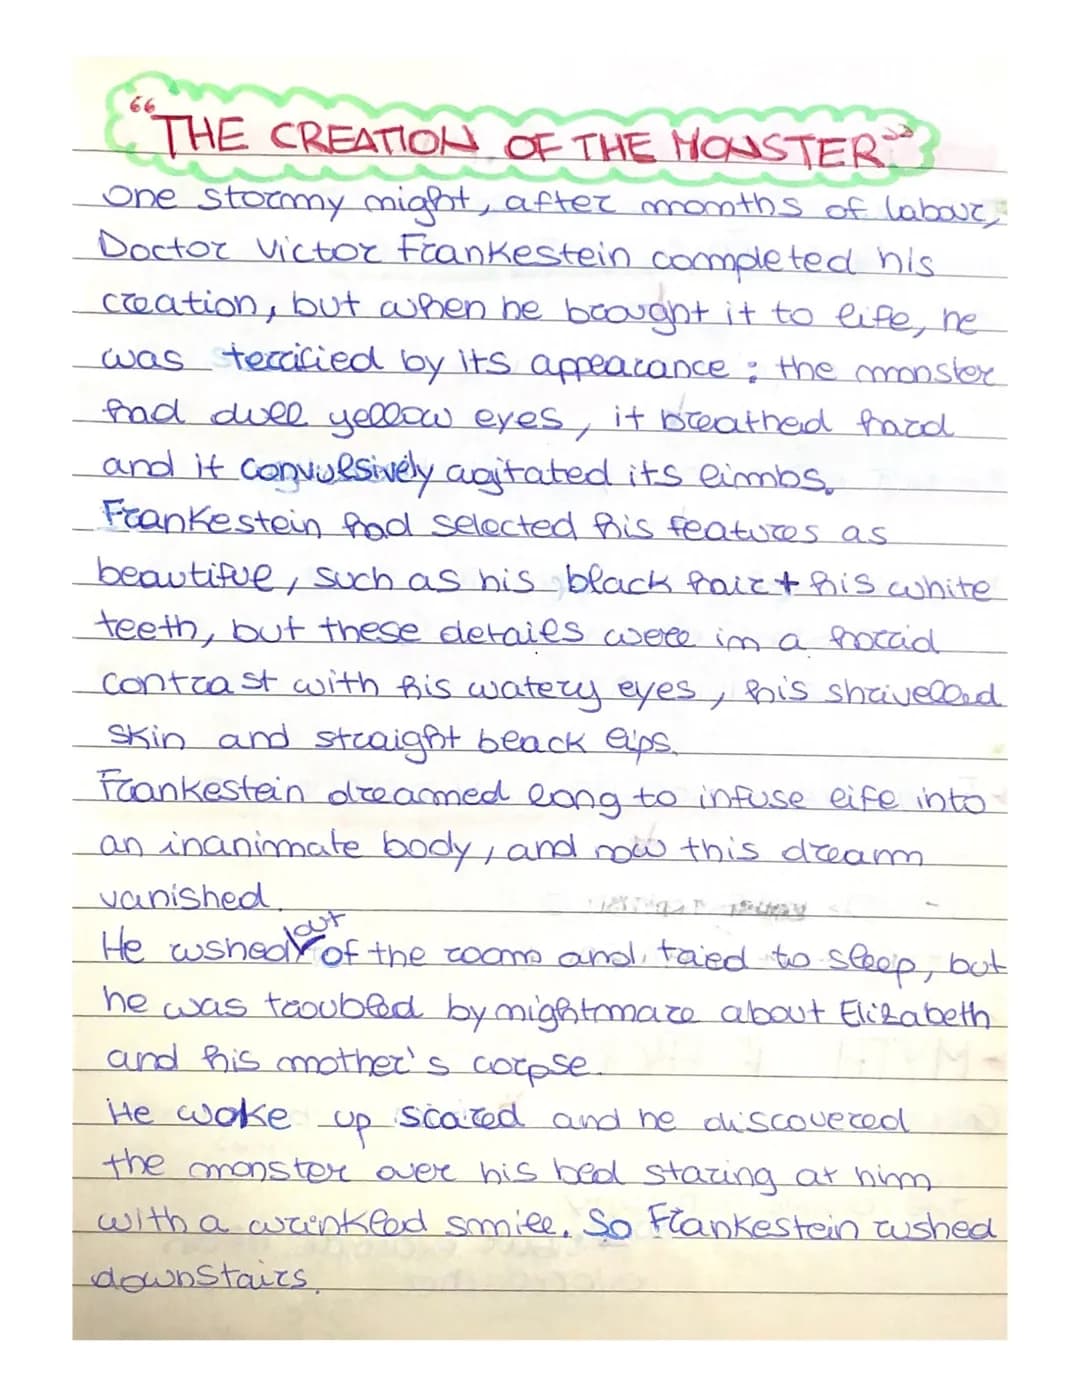 “THE CREATION OF THE MONSTER”
One stormy night, after months of labour,
Doctor Victor Frankestein completed his
creation, but when he brought it to life, he
was terrified by its appearance: the monster
had dull yellow eyes, it breathed hard
and it convulsively agitated its limbs.
Frankestein had selected his features as
beautiful, such as his black hair + his white
teeth, but these details were in a horrid
contrast with his watery eyes, his shrivelled
skin and straight black lips.
Frankestein dreamed long to infuse life into
an inanimate body, and now this dream
vanished.
out
He rushed of the room and tried to sleep, but
he was troubled by nightmare about Elizabeth
and his mother's corpse.
He woke up scared and he discovered
the monster over his bed staring at him
with a wrinkled smile. So Frankestein rushed
downstairs.